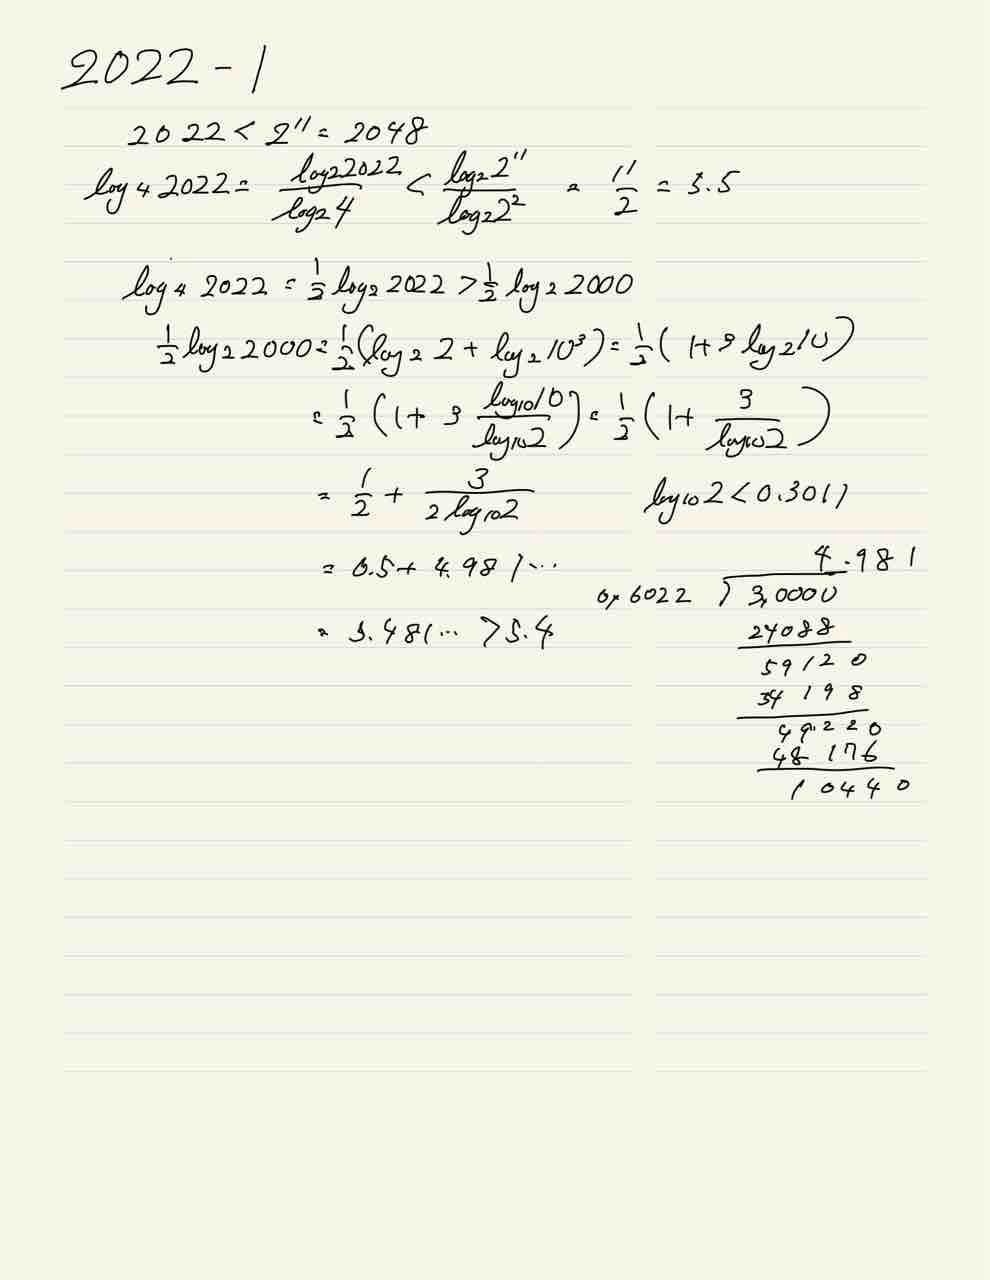 2022-1
2022 < 2^11 = 2048
log_4 2022 = log_2 2022 / log_2 4 < log_2 2^11 / log_2 2^2 = 11/2 = 5.5
log_4 2022 = 1/2 log_2 2022 > 1/2 log_2 2000
1/2 log_2 2000 = 1/2 (log_2 2 + log_2 10^3) = 1/2 (1 + 3 log_2 10)
= 1/2 (1 + 3 log_10 10 / log_10 2) = 1/2 (1 + 3 / log_10 2)
= 1/2 + 3 / (2 log_10 2)   log_10 2 < 0.3011
= 0.5 + 4.981...
= 5.481... > 5.4
4.981
0.6022 ) 3.0000
24088
59120
54198
49220
48176
10440